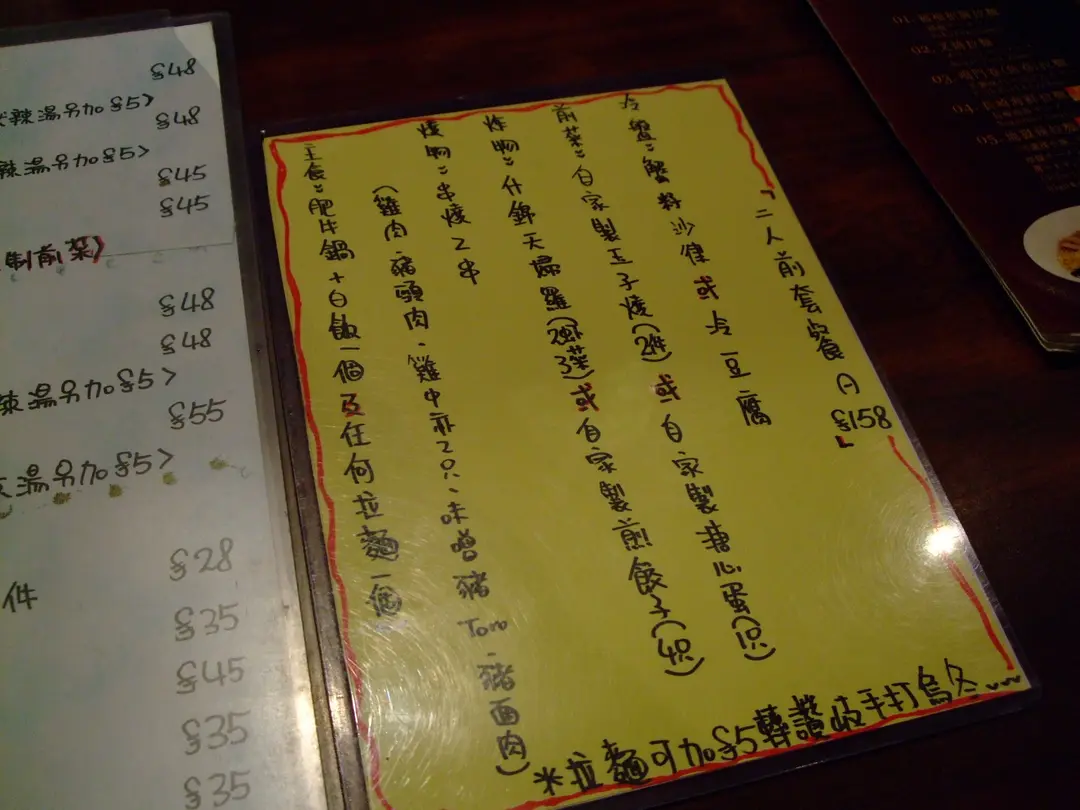 $48
辣湯另加$5>
$48
辣湯另加$5>
$45
$45
制前菜)
$48
$48
辣湯另加$5>
$55
湯另加$5>
$28
件
$35
$45
$35
$35
「二人前套餐A
$158」
冷盤:蟹籽沙律或冷豆腐
前菜:自家製玉子燒(2件)或自家製溏心蛋(1只)
炸物:什錦天婦羅(2蝦3菜)或自家製煎餃子(4只)
燒物:串燒2串
(雞肉、豬頸肉、雞中亦2只、味噌豬Toro、豬面肉)
主食:肥牛鍋+白飯一個及任何拉麵一個
*拉麵可加$5轉讚岐手打烏冬
01.
02.
03.
04.
05.